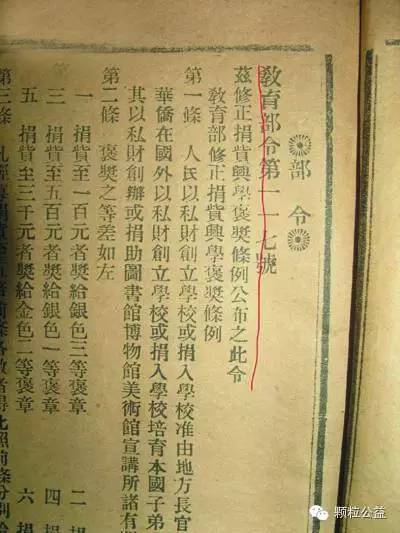 部令
教育部令第一一七號
茲修正捐貲興學褒獎條例公布之此令
教育部修正捐貲興學褒獎條例
第一條 人民以私財創立學校或捐入學校准由地方長官
華僑在國外以私財創立學校或捐入學校培育本國子弟
其以私財創辦或捐助圖書館博物館美術館宣講所諸有
第二條 褒獎之等差如左
一 捐貲至一百元者獎給銀色三等褒章 二 捐
三 捐貲至五百元者獎給銀色一等褒章 四 捐
五 捐貲至三千元者獎給金色二等褒章 六 捐
第三條
颗粒公益